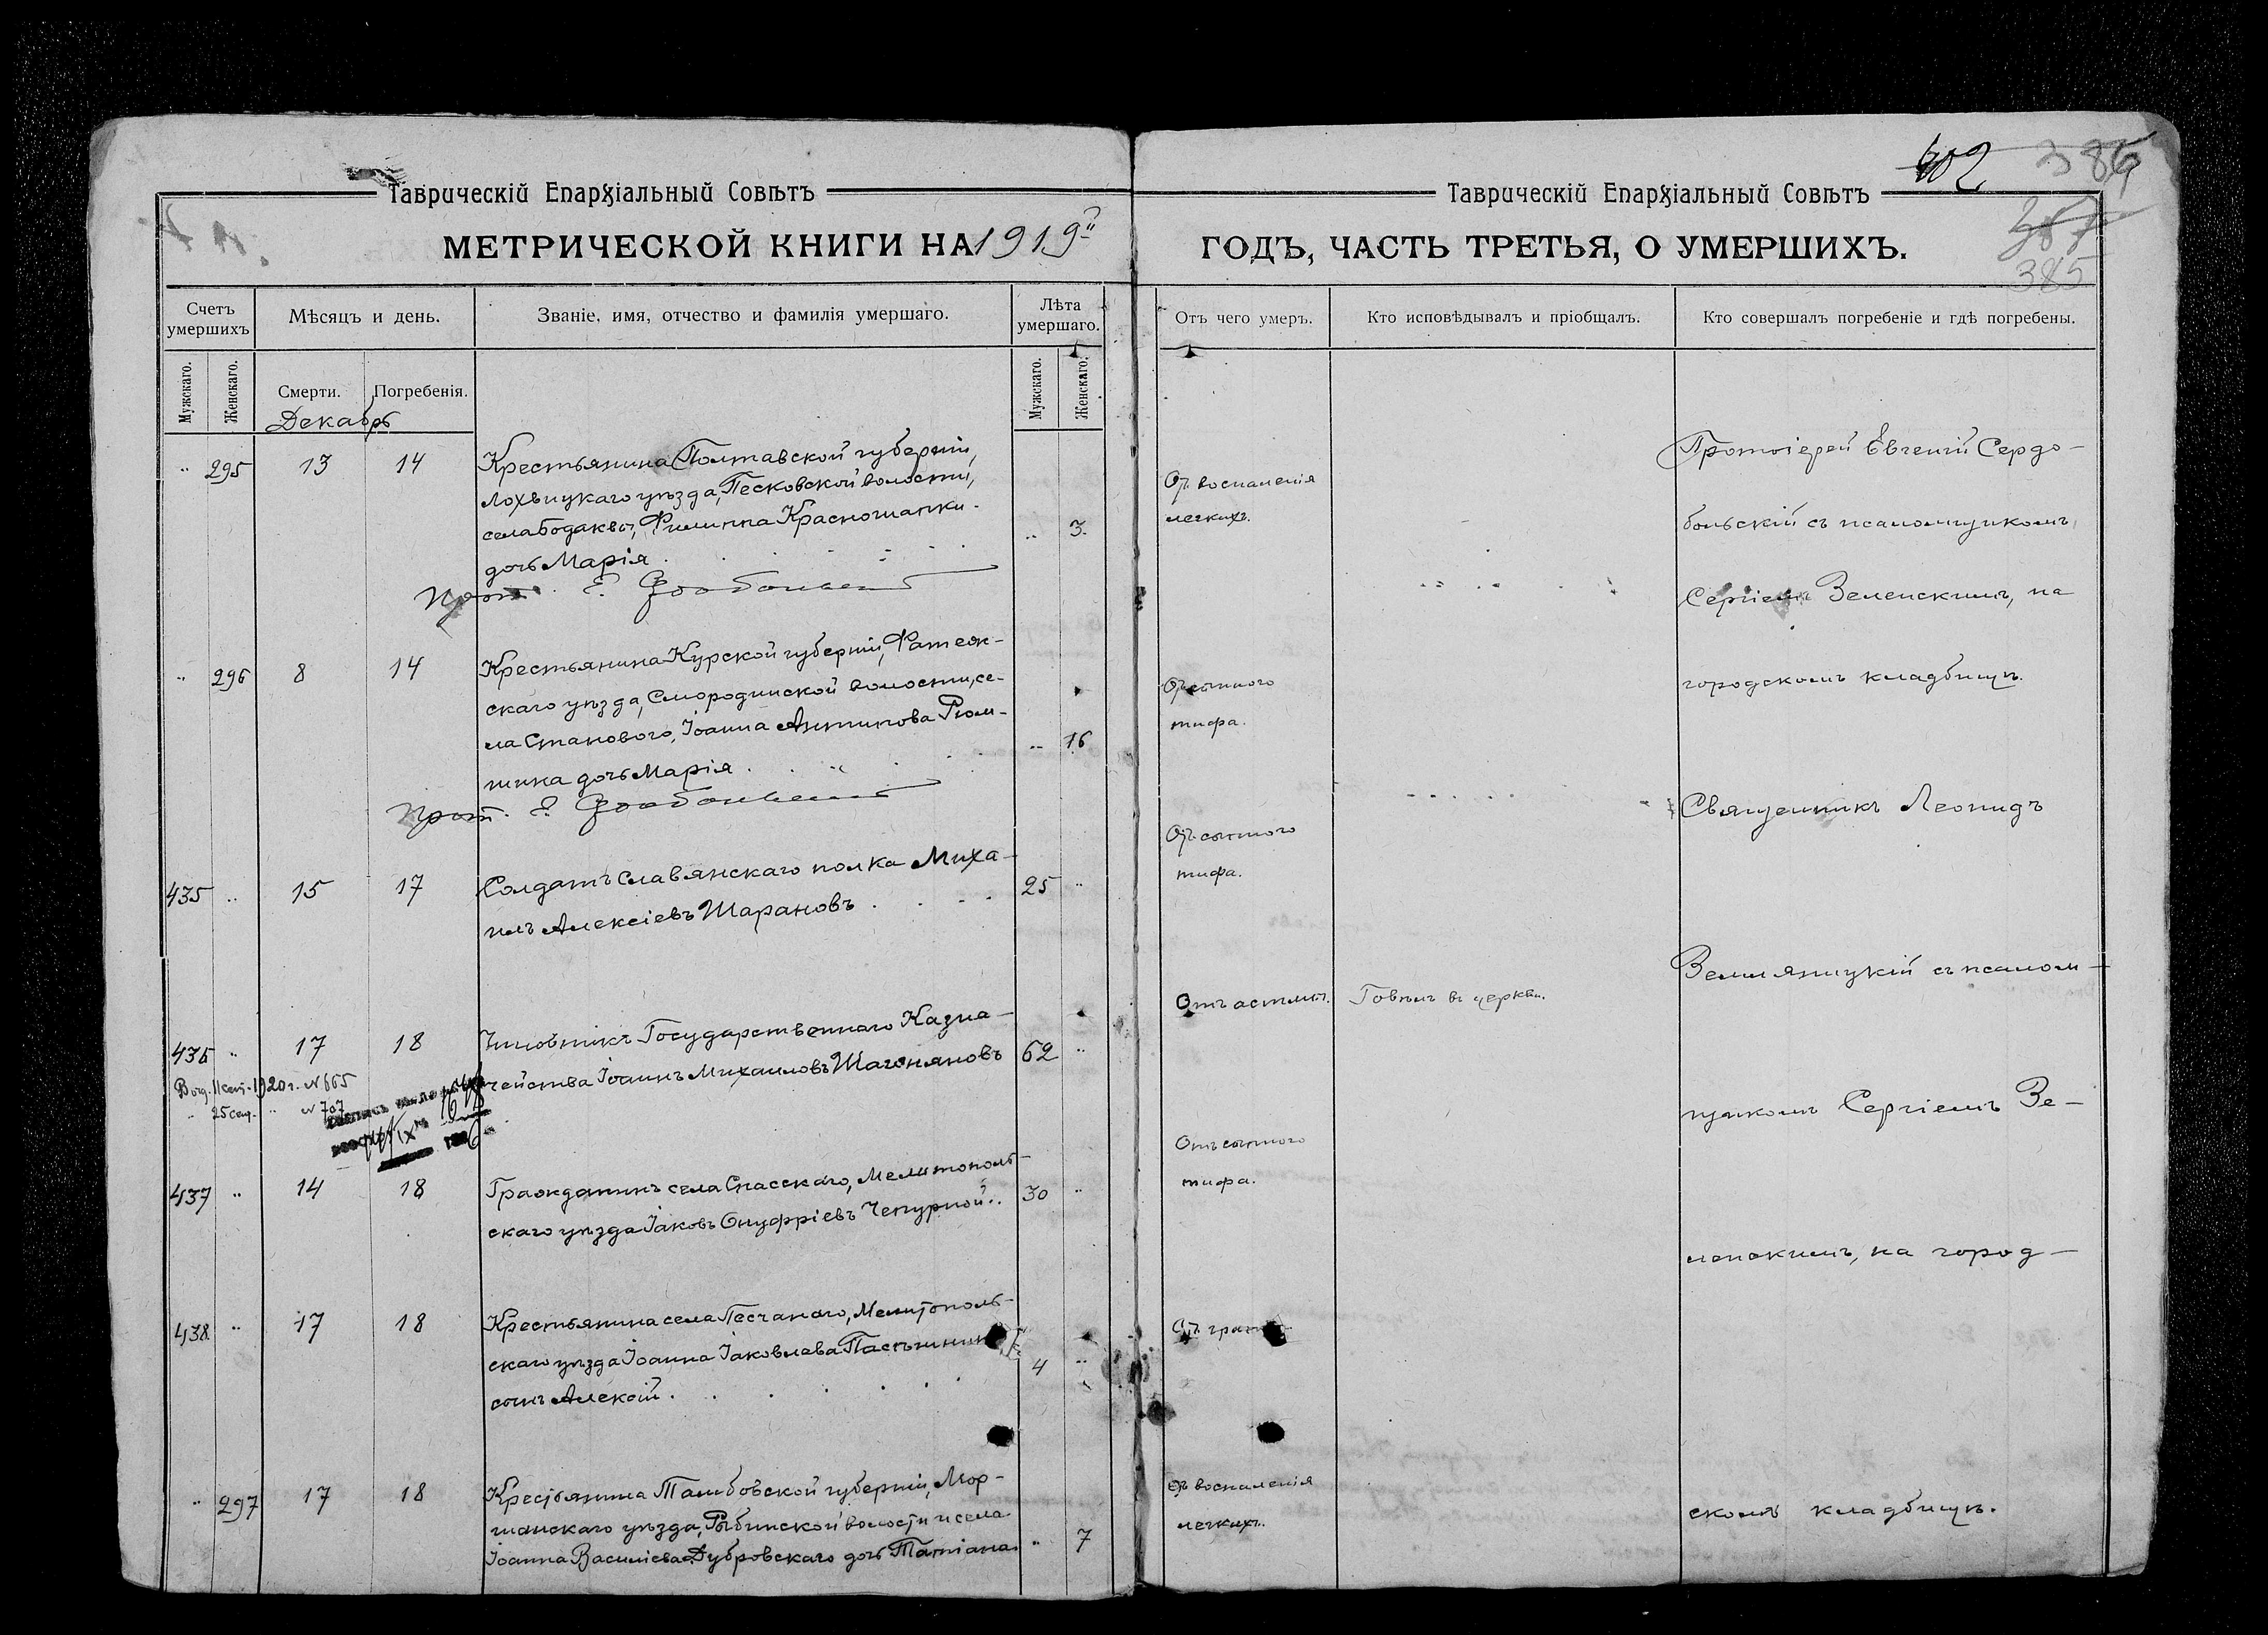 Таврическій Епархіальный Совѣтъ
МЕТРИЧЕСКОЙ КНИГИ НА 1919й
Счетъ умершихъ
Мѣсяцъ и день.
Званіе, имя, отчество и фамилія умершаго.
Лѣта умершаго.
Мужскаго.
Женскаго.
Смерти.
Погребенія.
Мужскаго.
Женскаго.
Декабрь
" 295 13 14
Крестьянина Полтавской губерніи,
Лохвицкаго уѣзда, Песковской волости,
села Бодаквы, Филиппа Красношапки
дочь Марія
" 3.
Прот. Е.
" 296 8 14
Крестьянина Курской губерніи, Фатеж-
скаго уѣзда, Смородинской волости, се-
ла Станового, Іоанна Антипова Рюм-
шина дочь Марія
" 16
Прот. Е.
435 " 15 17
Солдатъ Славянскаго полка Миха-
илъ Алексіевъ Шарановъ
25 "
436 " 17 18
Чиновникъ Государственнаго Казна-
чейства Іоаннъ Михаиловъ Шагеняновъ
62 "
Выд. 11 сент. 1920 г. № 665
" 25 сент. " № 707
437 " 14 18
Гражданинъ села Спасскаго, Мелитополь-
скаго уѣзда Іаковъ Онуфріевъ Чепурной
30 "
438 " 17 18
Крестьянина села Песчанаго, Мелитополь-
скаго уѣзда Іоанна Іаковлева
сынъ Алексій
4 "
" 297 17 18
Крестьянина Тамбовской губерніи, Мор-
шанскаго уѣзда, Рыбинской волости и села
Іоанна Василіева Дубровскаго дочь Татіана
" 7
402
386
387
385
Таврическій Епархіальный Совѣтъ
ГОДЪ, ЧАСТЬ ТРЕТЬЯ, О УМЕРШИХЪ.
Отъ чего умеръ.
Кто исповѣдывалъ и пріобщалъ.
Кто совершалъ погребеніе и гдѣ погребены.
Отъ воспаленія
легкихъ.
Отъ сыпного
тифа.
Отъ сыпного
тифа.
Отъ астмы.
Говѣлъ въ церкви.
Отъ сыпного
тифа.
Отъ
Отъ воспаленія
легкихъ.
Протоіерей Евгеній Сердо-
больскій съ псаломщикомъ
Сергіемъ Зеленскимъ, на
городскомъ кладбищѣ.
Священникъ Леонидъ
Велмяницкій съ псалом-
щикомъ Сергіемъ Зе-
ленскимъ, на город-
скомъ кладбищѣ.